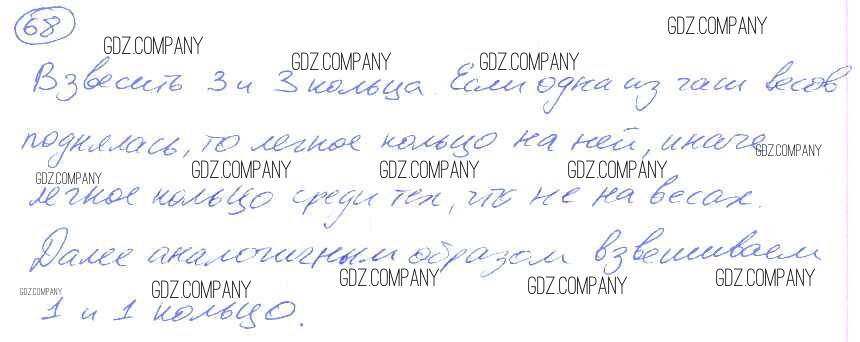 68
GDZ.COMPANY
GDZ.COMPANY GDZ.COMPANY GDZ.COMPANY
Взвесить 3 и 3 кольца. Если одна из чаш весов
поднялась, то легкое кольцо на ней, иначе
GDZ.COMPANY
GDZ.COMPANY GDZ.COMPANY GDZ.COMPANY GDZ.COMPANY
легкое кольцо среди тех, что не на весах.
Далее аналогичным образом взвешиваем
GDZ.COMPANY GDZ.COMPANY GDZ.COMPANY GDZ.COMPANY GDZ.COMPANY
1 и 1 кольцо.